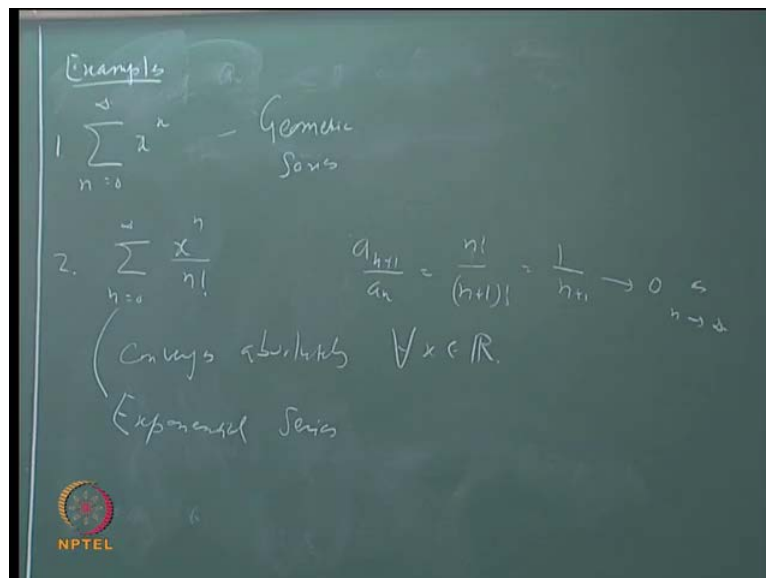 Examples
1 ∑_{n=0}^{∞} x^n - Geometric
Series
2. ∑_{n=0}^{∞} x^n/n!   a_{n+1}/a_n = n!/(n+1)! = 1/(n+1) → 0 as n→∞
Converges absolutely ∀ x ∈ ℝ.
Exponential Series
NPTEL